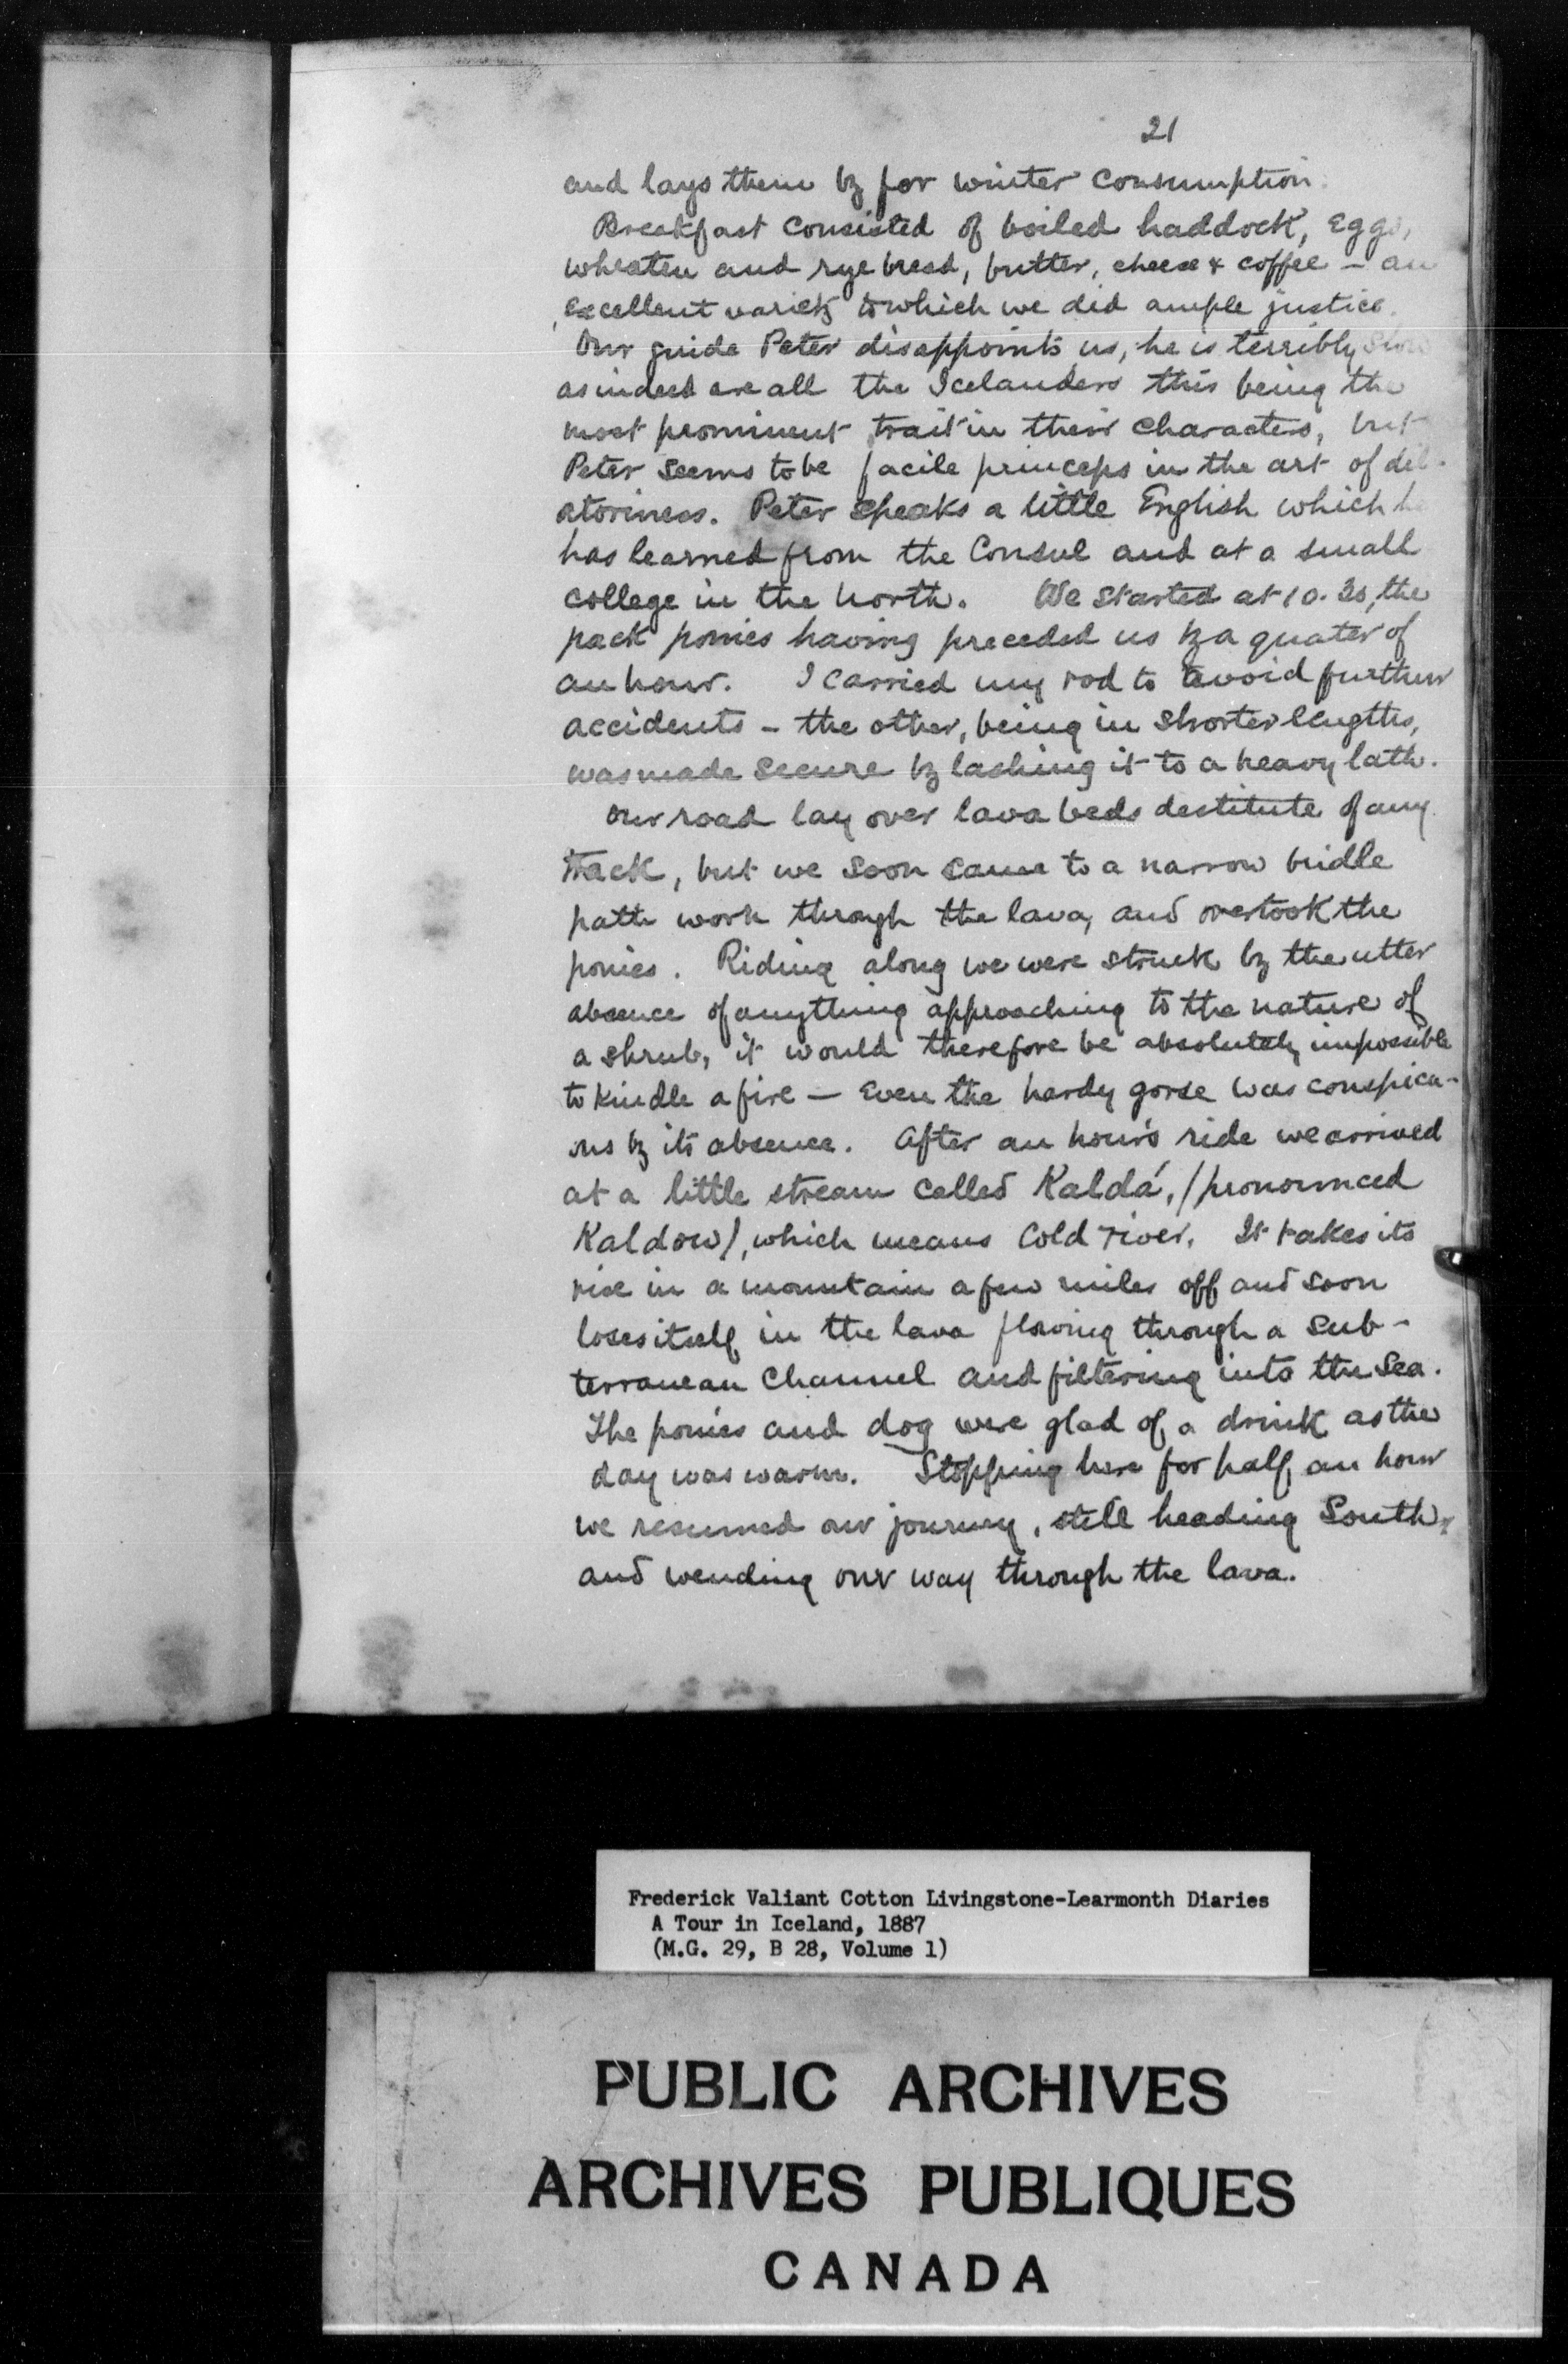 21
and lays them by for winter consumption.
Breakfast consisted of boiled haddock, eggs,
wheaten and rye bread, butter, cheese & coffee - an
excellent variety to which we did ample justice.
Our guide Peter disappoints us, he is terribly slow
as indeed are all the Icelanders this being the
most prominent trait in their characters, but
Peter seems to be facile princeps in the art of dil-
atoriness. Peter speaks a little English which he
has learned from the Consul and at a small
college in the north. We started at 10.30, the
pack ponies having preceded us by a quater of
an hour. I carried my rod to avoid further
accidents - the other, being in shorter lengths,
was made secure by lashing it to a heavy lath.
Our road lay over lava beds destitute of any
track, but we soon came to a narrow bridle
path worn through the lava, and overtook the
ponies. Riding along we were struck by the utter
absence of anything approaching to the nature of
a shrub, it would therefore be absolutely impossible
to kindle a fire - Even the hardy gorse was conspicu-
ous by its absence. After an hour's ride we arrived
at a little stream called Kaldá, (pronounced
Kaldow), which means Cold river. It takes its
rise in a mountain a few miles off and soon
loses itself in the lava flowing through a sub-
terranean Channel and filtering into the Sea.
The ponies and dog were glad of a drink as the
day was warm. Stopping here for half an hour
we resumed our journey, still heading South,
and wending our way through the lava.
Frederick Valiant Cotton Livingstone-Learmonth Diaries
A Tour in Iceland, 1887
(M.G. 29, B 28, Volume 1)
PUBLIC ARCHIVES
ARCHIVES PUBLIQUES
CANADA